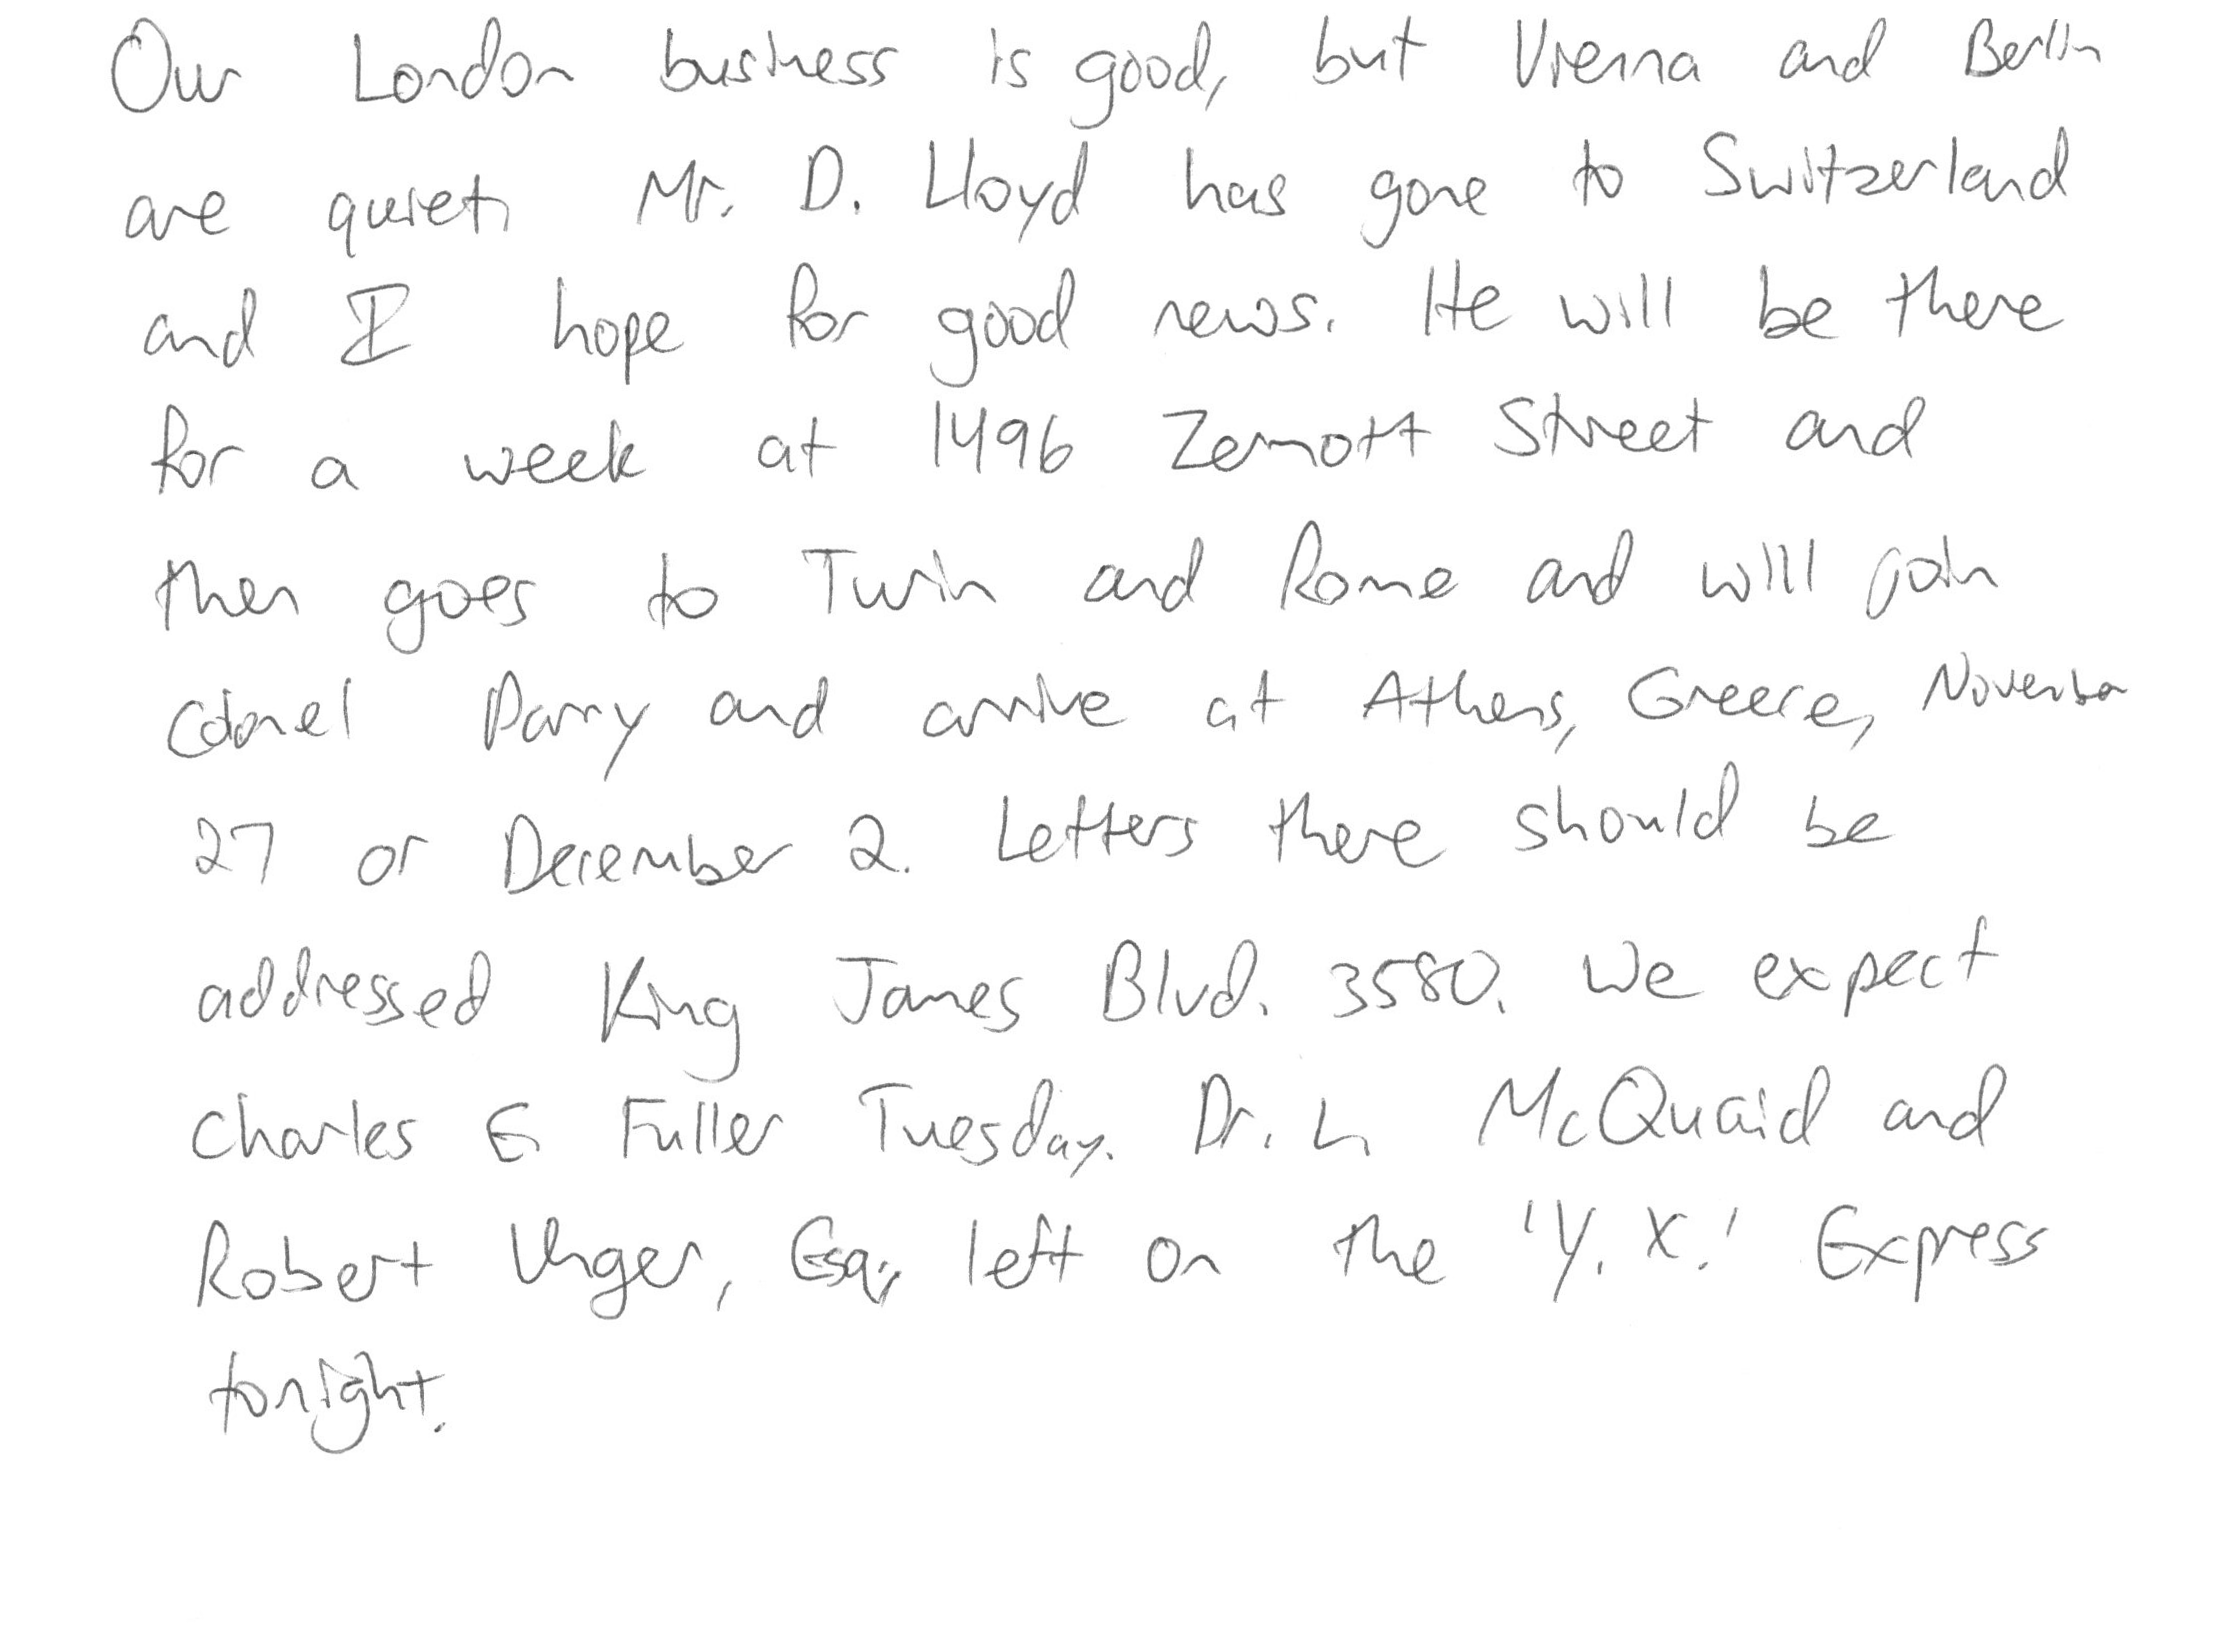 Our London business is good, but Vienna and Berlin
are quiet. Mr. D. Lloyd has gone to Switzerland
and I hope for good news. He will be there
for a week at 1496 Zemott Street and
then goes to Turin and Rome and will join
Colonel Parry and arrive at Athens, Greece, November
27 or December 2. Letters there should be
addressed King James Blvd. 3580. We expect
Charles E. Fuller Tuesday. Dr. L. McQuaid and
Robert Unger, Esq., left on the 'Y. X.' Express
tonight.